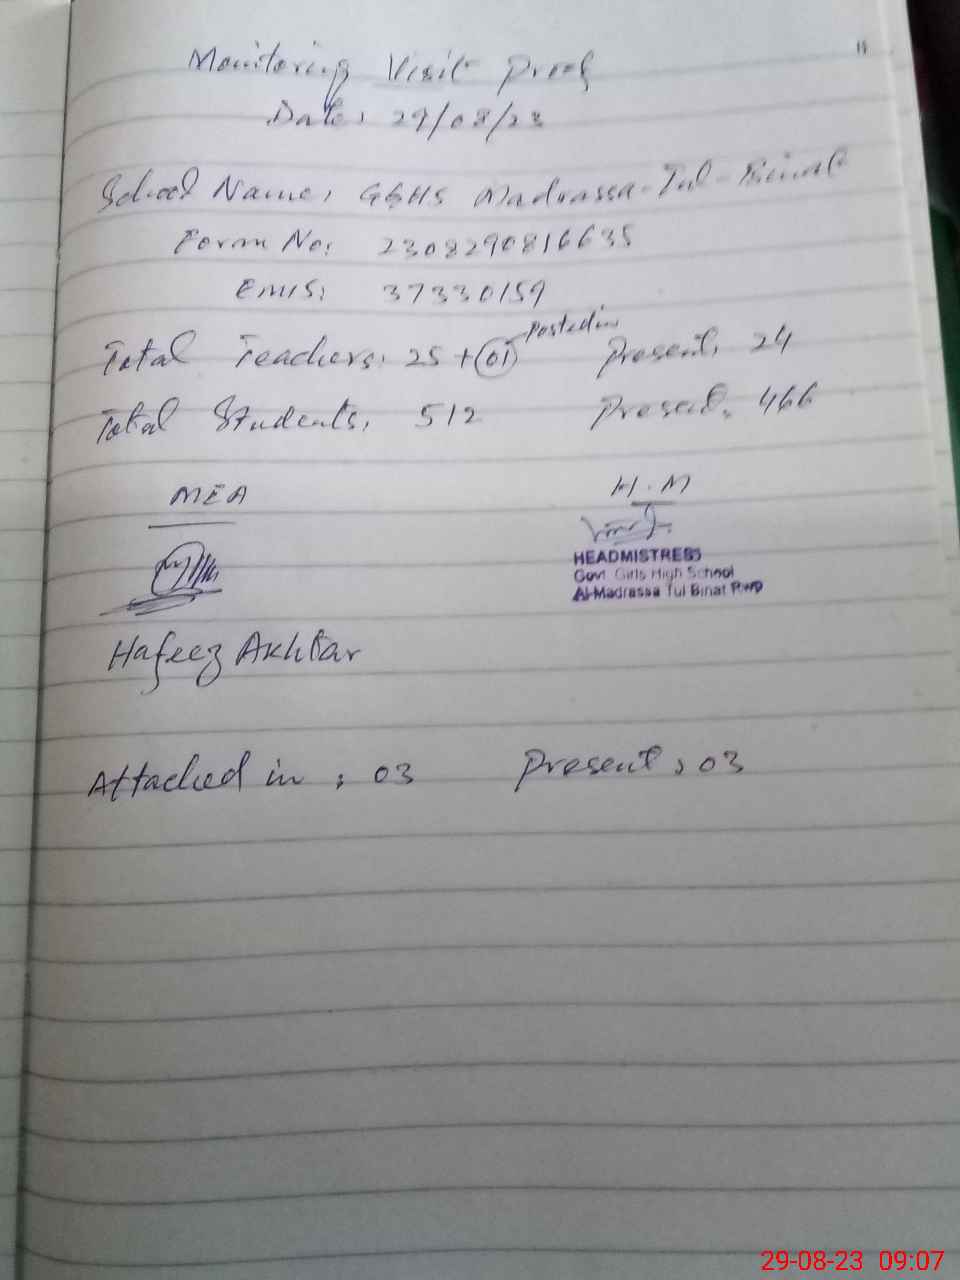 11
Monitoring Visit Proof
Date: 29/08/23
School Name: GGHS Madrassa-Tul-Binat
Form No: 2308290816635
EMIS: 37330159
Total Teachers: 25 + (01) Posted in Present: 24
Total Students: 512 Present: 466
MEA H.M
HEADMISTRESS
Govt Girls High School
Al-Madrassa Tul Binat Rwp
Hafeez Akhtar
Attached in : 03 Present : 03
29-08-23 09:07